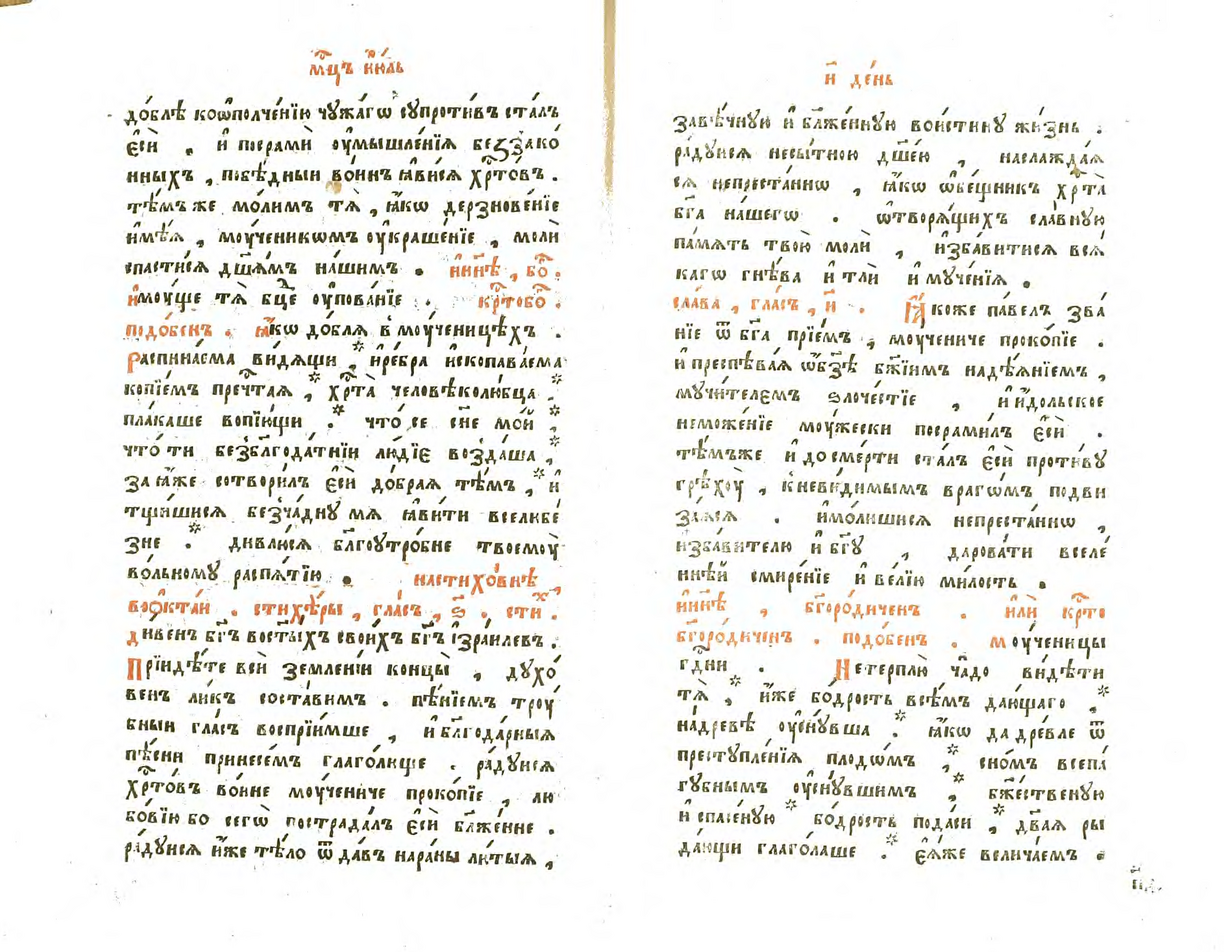 мц҃ъ і҆ю́ль
до́блѣ коѡ҆полче́нїю чужа́гѡ сꙋпроти́въ ста́лъ
є҆сѝ , и҆ посрамѝ оу҆мышле́нїѧ беззако́
нныхъ , побѣ́дныи во́инъ ꙗ҆ви́сѧ хрⷭ҇то́въ .
тѣ́мъ же мо́лимъ тѧ̀ , ꙗ҆́кѡ дерзнове́нїе
и҆мѣ́ѧ , моу́ченикѡмъ оу҆краше́нїе , молѝ
спасти́сѧ дш҃а́мъ на́шимъ . нн҃ѣ , бо҃ :
и҆моу́ще тѧ̀ бц҃е оу҆пова́нїе . крⷭ҇тобо҃ .
подо́бенъ . ꙗ҆́кѡ до́блѧ в моу́ченицѣхъ .
Распина́ема ви́дѧщи , и҆ре́бра и҆скопава́ема
копїе́мъ пречⷭ҇таѧ , * хрⷭ҇та̀ человѣколю́бца . *
пла́каше вопїю́щи . * что́ се сн҃е мо́й , *
что́ ти безблагода́тнїи лю́дїе возда́ша , *
за ꙗ҆́же сотвори́лъ є҆сѝ до́браѧ тѣ́мъ , * и҆
тщи́шисѧ безча́днꙋ мѧ ꙗ҆ви́ти вселюбе́
зне . * дивлю́сѧ бл҃гоутро́бне твоемоу̀
во́льномꙋ распѧ́тїю . настихо́внѣ
воѻктаи . стихѣ́ры , гла́съ , ѕ҃ . сти́х .
ди́венъ бг҃ъ вост҃ы́хъ свои́хъ бг҃ъ і҆зра́илевъ .
Прїидѣ́те всѝ земле́нїи концы̀ , дꙋхо́
венъ ли́къ соста́вимъ . пѣ́нїемъ троу́
бныи гла́съ воспрїи́мше , и҆ бл҃года́рныѧ
пѣ́сни принесе́мъ глаго́люще . ра́дꙋисѧ
хрⷭ҇то́въ во́ине моу́чениче проко́пїе , лю
бо́вїю бо сегѡ̀ пострада́лъ є҆сѝ бл҃же́нне .
ра́дꙋисѧ и҆́же тѣ́ло ѿ да́въ нара́ны лю́тыѧ ,
и҃ де́нь
завѣ́чнꙋю и҆ бл҃же́ннꙋю вои́стинꙋ жи́знь .
ра́дꙋисѧ несы́тною дш҃е́ю , наслажда́ѧ
сѧ непреста́ннѡ , ꙗ҆́кѡ ѡ҆бе́щникъ хрⷭ҇та̀
бг҃а на́шегѡ . ѡ҆творѧ́щихъ сла́внꙋю
па́мѧть твою̀ молѝ , и҆зба́витисѧ всѧ́
кагѡ гнѣ́ва и҆ тлѝ и҆ мꙋче́нїѧ .
сла́ва , гла́съ , и҃ . Ꙗ҆́коже па́велъ зва́
нїе ѿ бг҃а прїе́мъ , моу́чениче проко́пїе .
и҆ преспѣва́ѧ ѡ҆бз҃ѣ бж҃їимъ надѣ́ѧнїемъ ,
мꙋчи́телемъ ѕлоче́стїе , и҆ и҆́дольское
неможе́нїе моу́жески посрами́лъ є҆сѝ .
тѣ́мъже и҆ до сме́рти ста́лъ є҆сѝ проти́вꙋ
грѣхоу̀ , к неви́димымъ врагѡ́мъ подви
за́ѧсѧ . и҆мо́лишисѧ непреста́ннѡ ,
и҆зба́вителю и҆ бг҃ꙋ , дарова́ти вселе́
ннѣй смире́нїе и҆ ве́лїю ми́лость .
нн҃ѣ , бг҃оро́диченъ . и҆лѝ крⷭ҇то
бг҃оро́диченъ . подо́бенъ . моу́ченицы
гдⷭ҇ни . Нетерплю̀ ча́до ви́дѣти
тѧ̀ , * и҆́же бо́дрость всѣ́мъ даю́щаго , *
на́древѣ оу҆сну́вша . * ꙗ҆́кѡ да дре́вле ѿ
преступле́нїѧ плодѡ́мъ , * сно́мъ всепа́
губнымъ оу҆сну́вшимъ , * бж҃е́ственꙋю
и҆ спасе́нꙋю * бо́дрость пода́си , * дв҃аѧ ры
да́ющи глаго́лаше . * є҆ѧ́же велича́емъ .